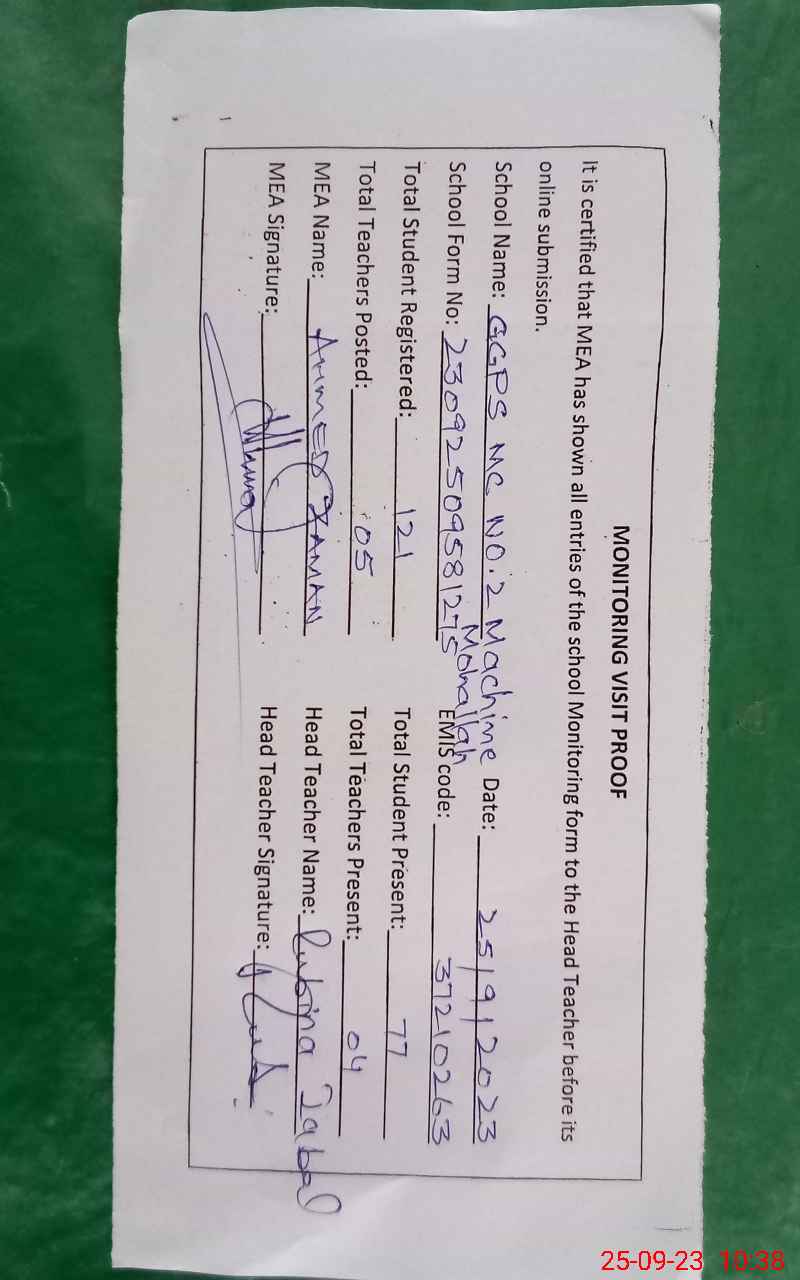 MONITORING VISIT PROOF
It is certified that MEA has shown all entries of the school Monitoring form to the Head Teacher before its
online submission.
School Name: GGPS MC NO.2 Machine Mohallah Date: 25/9/2023
School Form No: 23092509581275 EMIS code: 37210263
Total Student Registered: 121 Total Student Present: 77
Total Teachers Posted: 05 Total Teachers Present: 04
MEA Name: AHMED ZAMAN Head Teacher Name: Rubina Iqbal
MEA Signature: Head Teacher Signature:
25-09-23 10:38